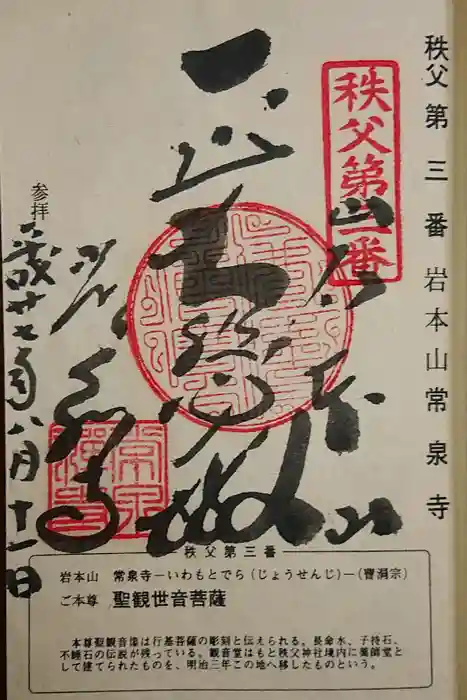 秩父第三番 岩本山 常泉寺
秩父第三番
参拝
平成廿七年八月十一日
秩父第三番
岩本山 常泉寺ーいわもとでら(じょうせんじ)ー(曹洞宗)
ご本尊 聖観世音菩薩
本尊聖観音像は行基菩薩の彫刻と伝えられる。長命水、子持石、
不睡石の伝説が残っている。観音堂はもと秩父神社境内に薬師堂と
して建てられたものを、明治三年この地へ移したものという。